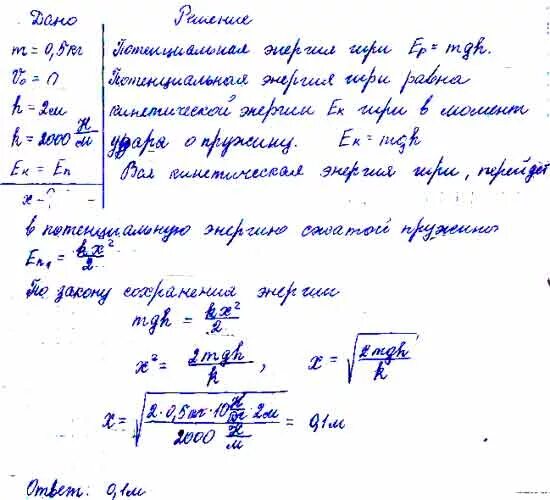 Дано Решение
m = 0,5 кг Потенциальная энергия гири Eр = mgh.
V₀ = 0 Потенциальная энергия гири равна
h = 2м кинетической энергии Eк гири в момент
k = 2000 Н/м удара о пружину. Eк = mgh
Eк = Eп Вся кинетическая энергия гири, перейдёт
x - ?
в потенциальную энергию сжатой пружины
Eп₁ = kx²/2
По закону сохранения энергии
mgh = kx²/2
x² = 2mgh/k, x = √(2mgh/k)
x = √(2·0,5кг·10 Н/кг·2м / 2000 Н/м) = 0,1м
Ответ: 0,1м